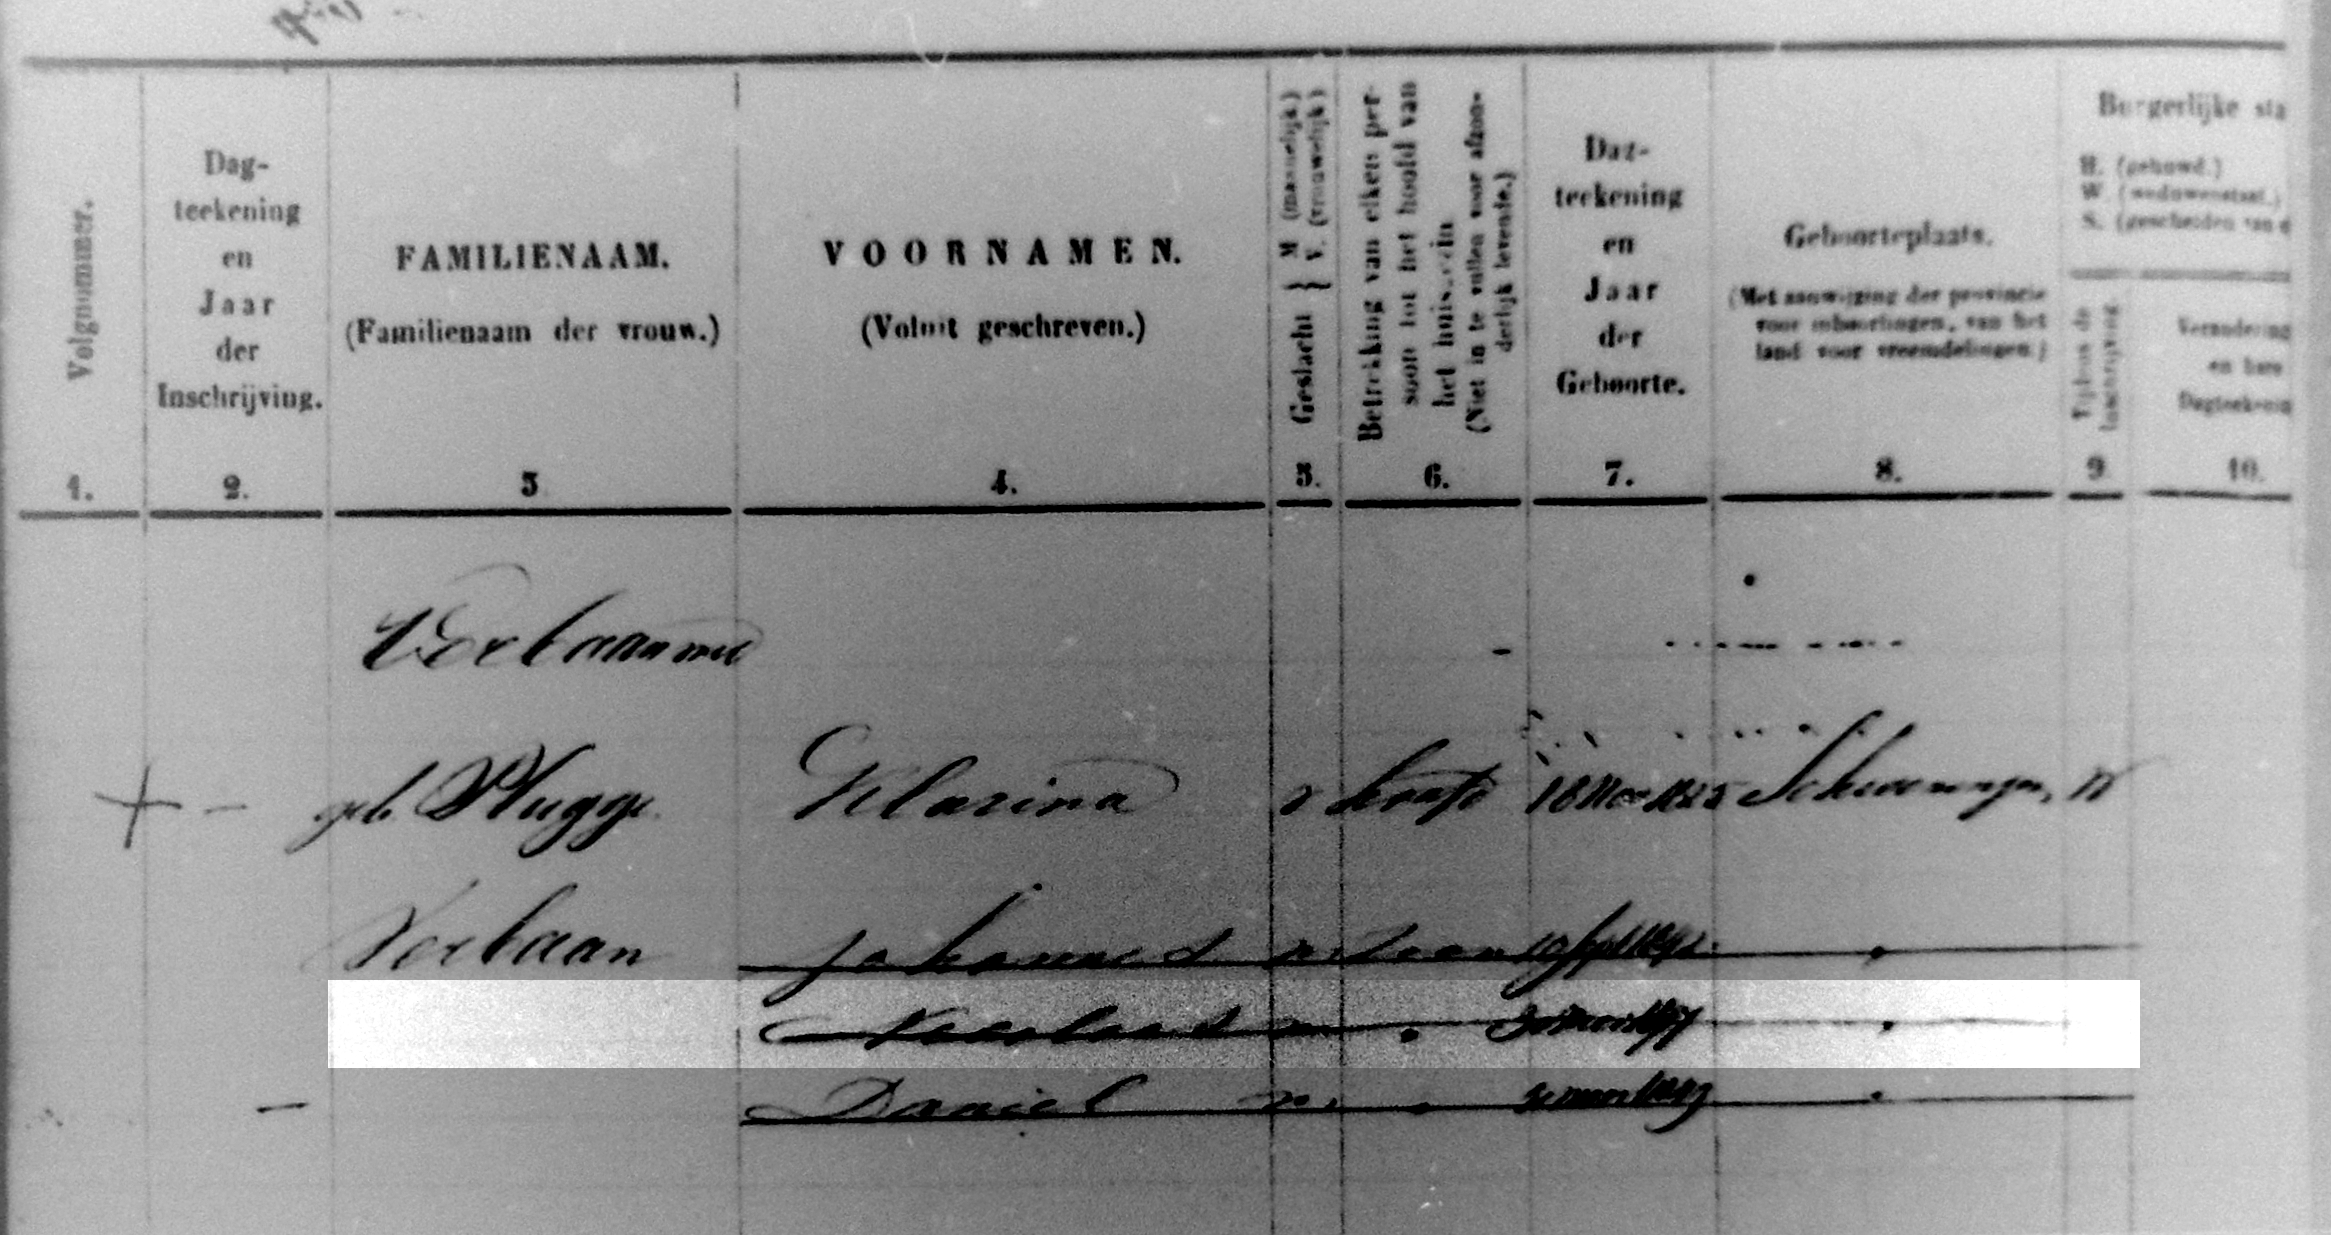 Volgnummer.
Dag-
teekening
en
Jaar
der
Inschrijving.
FAMILIENAAM.
(Familienaam der vrouw.)
VOORNAMEN.
(Voluit geschreven.)
Geslacht } M (mannelijk.) V. (vrouwelijk)
Betrekking van elken per-
soon tot het hoofd van
het huisgezin
(Niet in te vullen voor afzon-
derlijk levende.)
Dag-
teekening
en
Jaar
der
Geboorte.
Geboorteplaats.
(Met aanwijzing der provincie
voor inboorlingen, van het
land voor vreemdelingen.)
Burgerlijke sta
H. (gehuwd.)
W. (weduwenstaat.)
S. (gescheiden van
Tijdens de
inschrijving
Verandering
en hare
Dagteekenin
1. 2. 3 4. 5. 6. 7. 8. 9 10.
geb. Plugge Klarina v hoofd 18 Nov Scheveningen, W
Verbaan Johannes m zoon
m
Daniel m.